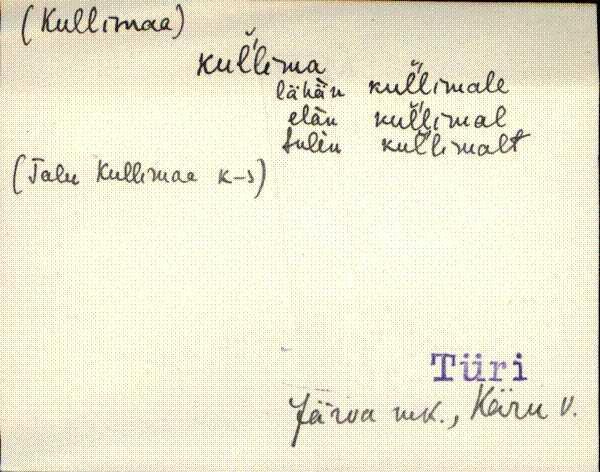 (Kullimaa)
kul̆lima
lähän kul̆limale
elän kul̆limal
tulèn kul̆limalt
(Talu Kullimaa k-s)
Türi
Järva mk., Käru v.